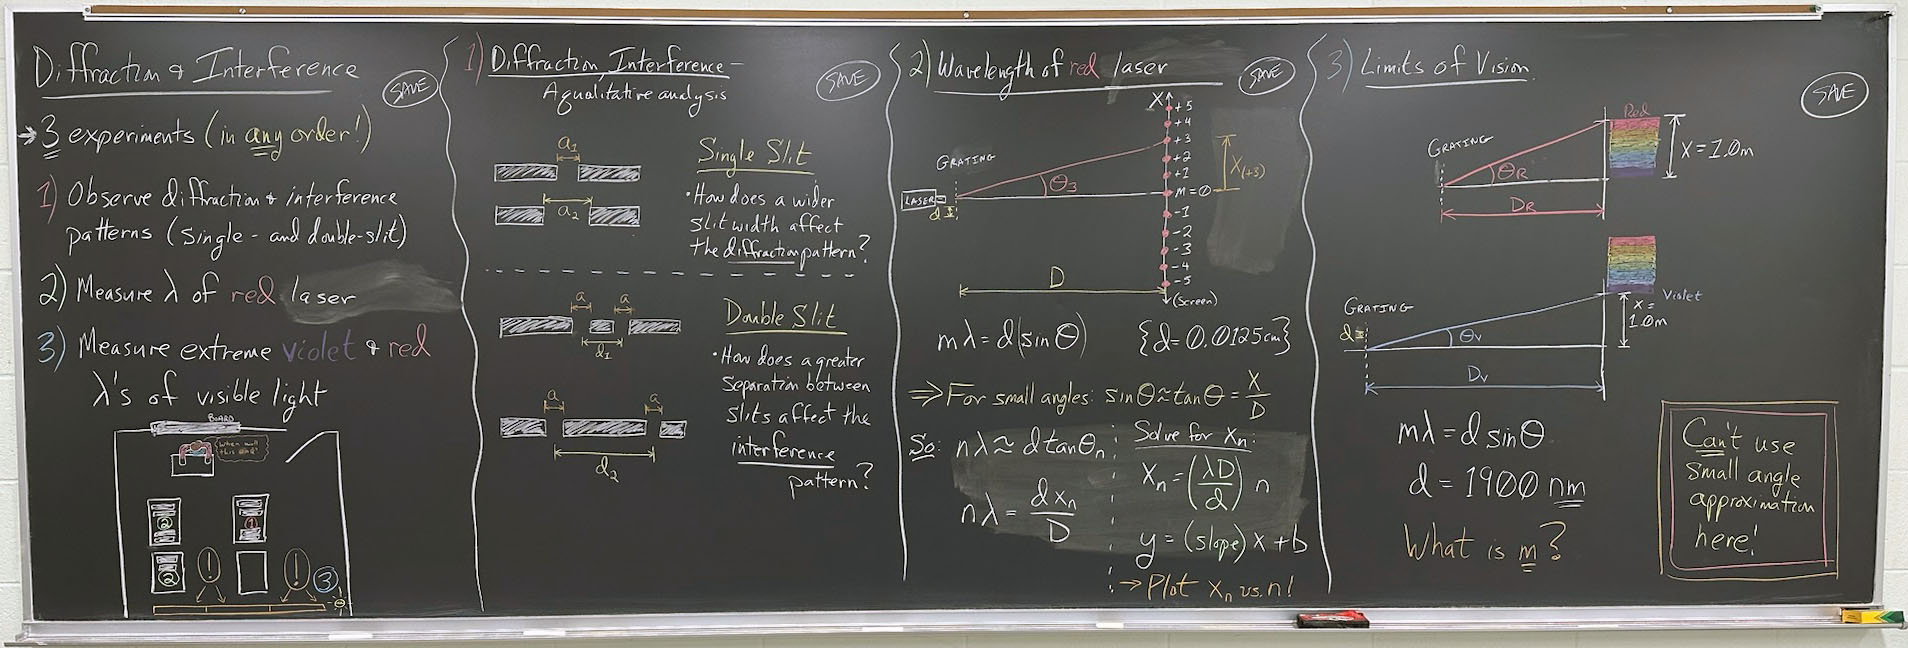 Diffraction & Interference
SAVE
→3 experiments (in any order!)
1) Observe diffraction & interference
patterns (single- and double-slit)
2) Measure λ of red laser
3) Measure extreme violet & red
λ's of visible light
BOARD
2
1
2
!
!
3
1) Diffraction, Interference-
A qualitative analysis
SAVE
a₁
a₂
Single Slit
• How does a wider
slit width affect
the diffraction pattern?
a a
d₁
a a
d₂
Double Slit
• How does a greater
separation between
slits affect the
interference
pattern?
2) Wavelength of red laser
SAVE
X
+5
+4
+3
+2
+1
m=0
-1
-2
-3
-4
-5
(Screen)
X(+3)
GRATING
θ₃
LASER
d
D
mλ = d(sinθ) {d=0.0125cm}
⇒ For small angles: sinθ≈tanθ = X/D
So: nλ ≈ d tanθₙ
nλ = d xₙ/D
Solve for Xₙ:
Xₙ = (λD/d) n
y = (slope) x + b
→ Plot Xₙ vs. n!
3) Limits of Vision
SAVE
Red
GRATING
θR
X = 1.0m
DR
GRATING
d
θv
x =
1.0m
Violet
Dv
mλ = d sinθ
d = 1900 nm
What is m?
Can't use
small angle
approximation
here!